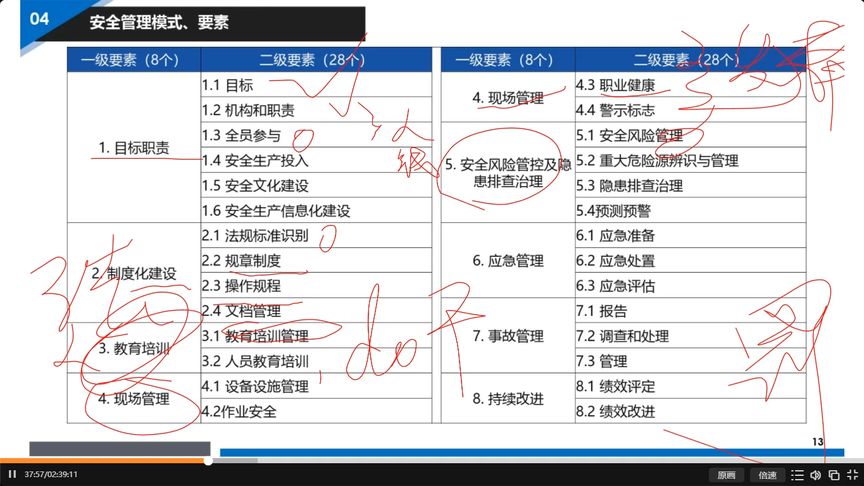 04
安全管理模式、要素
一级要素（8个） 二级要素（28个）
1. 目标职责
1.1 目标
1.2 机构和职责
1.3 全员参与
1.4 安全生产投入
1.5 安全文化建设
1.6 安全生产信息化建设
2. 制度化建设
2.1 法规标准识别
2.2 规章制度
2.3 操作规程
2.4 文档管理
3. 教育培训
3.1 教育培训管理
3.2 人员教育培训
4. 现场管理
4.1 设备设施管理
4.2作业安全
一级要素（8个） 二级要素（28个）
4. 现场管理
4.3 职业健康
4.4 警示标志
5. 安全风险管控及隐
患排查治理
5.1 安全风险管理
5.2 重大危险源辨识与管理
5.3 隐患排查治理
5.4预测预警
6. 应急管理
6.1 应急准备
6.2 应急处置
6.3 应急评估
7. 事故管理
7.1 报告
7.2 调查和处理
7.3 管理
8. 持续改进
8.1 绩效评定
8.2 绩效改进
do
13
37:57/02:39:11
原画 倍速